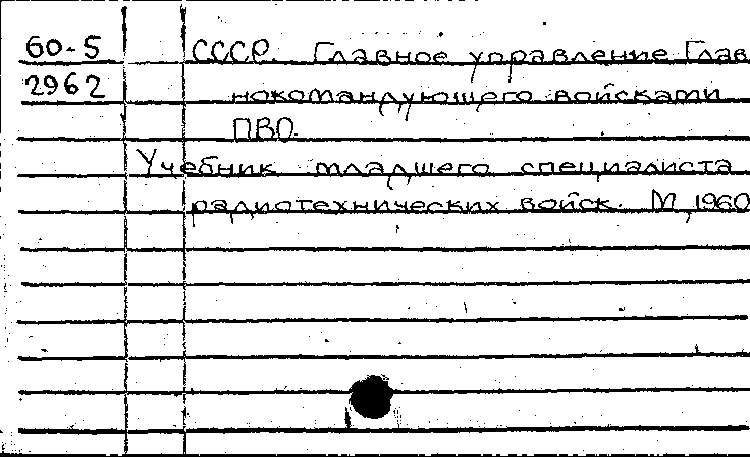 60-5 СССР. Главное управление Глав
2962 нокомандующего войсками
ПВО.
Учебник младшего специалиста
радиотехнических войск. М, 1960